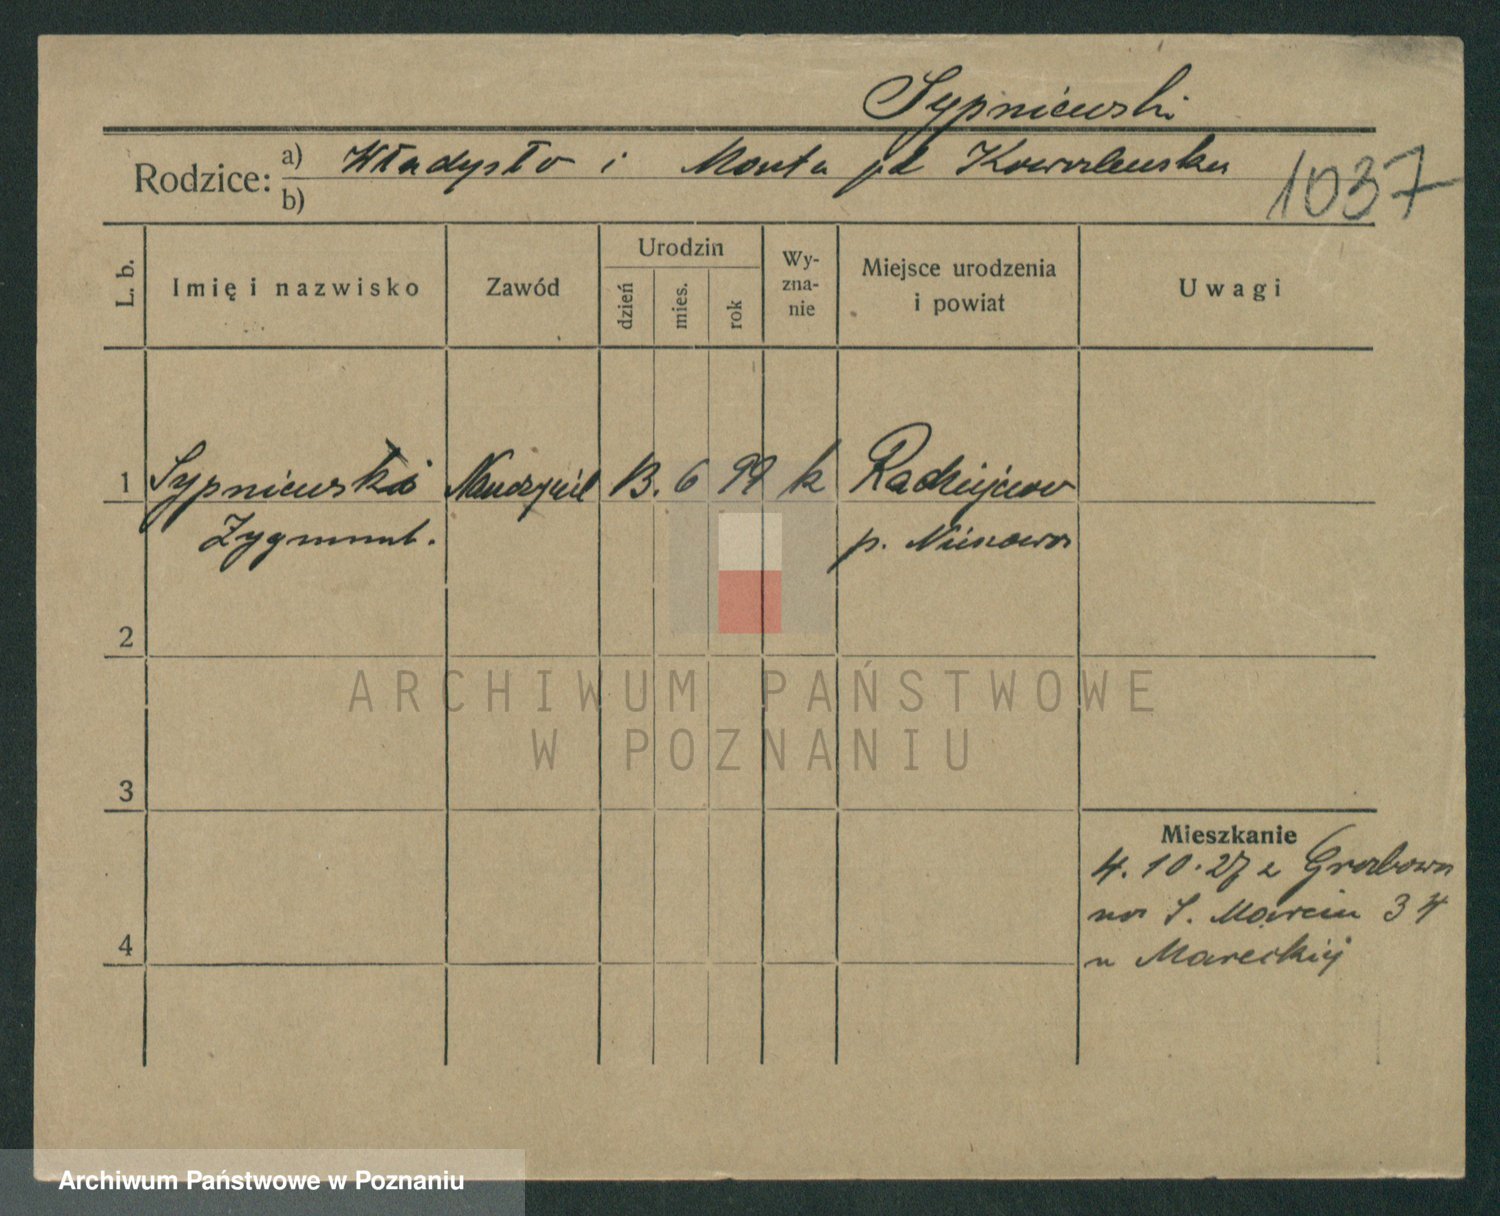 Sypniewski
Rodzice: a) Władysło i Marta pd Kowalewska
b)
1037
L. b.
Imię i nazwisko
Zawód
Urodzin
dzień
mies.
rok
Wy-
zna-
nie
Miejsce urodzenia
i powiat
Uwagi
1 Sypniewski 13. 6 99 k Radziejow
Zygmunt. p. Nieszawa
2
3
4
Mieszkanie
4.10.27 z Grobowa
na S. Marcin 34
u Mareckij
ARCHIWUM PAŃSTWOWE
W POZNANIU
Archiwum Państwowe w Poznaniu